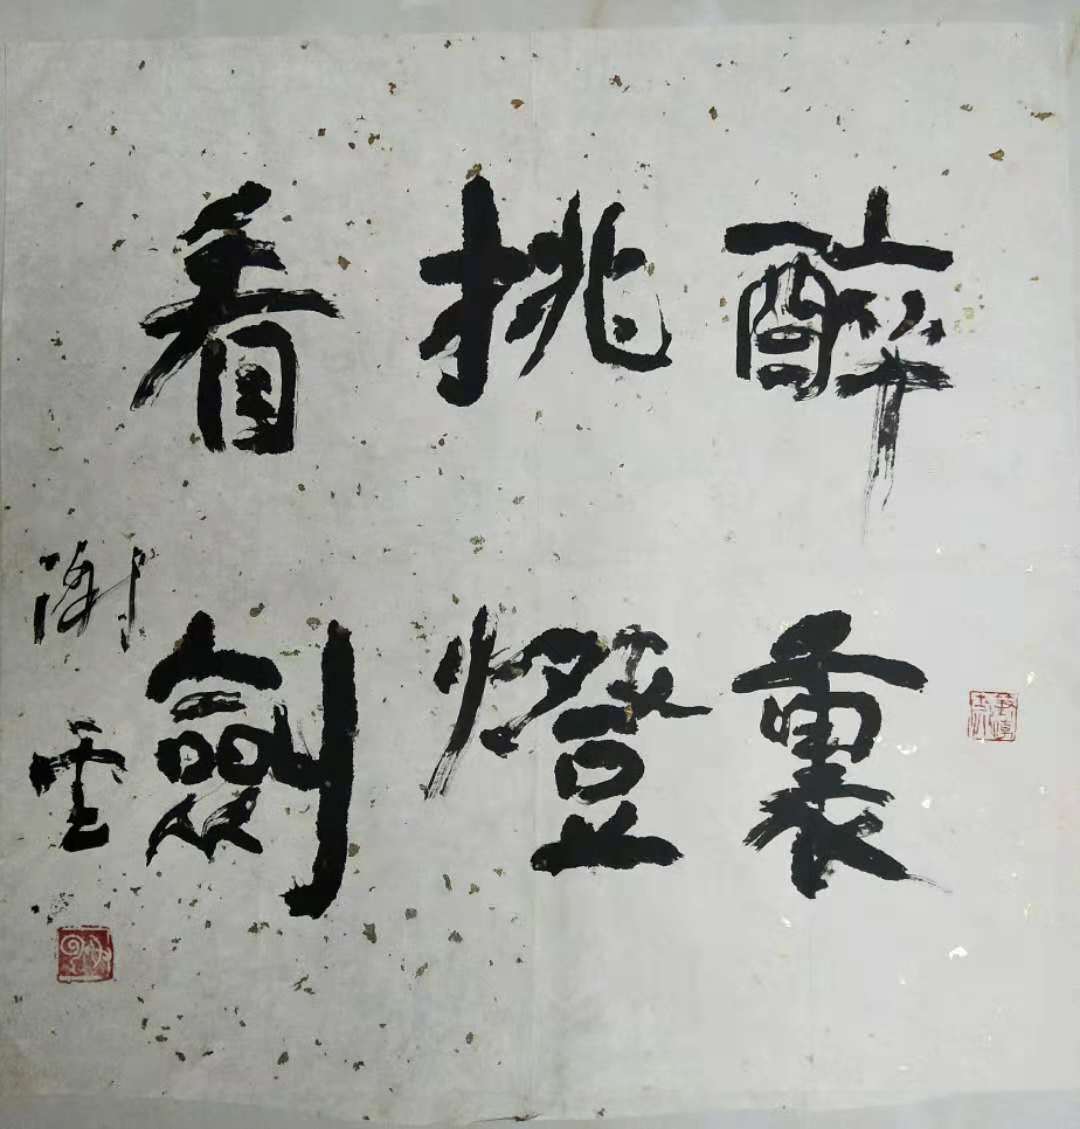 醉裏
挑燈
看劍
謝雲